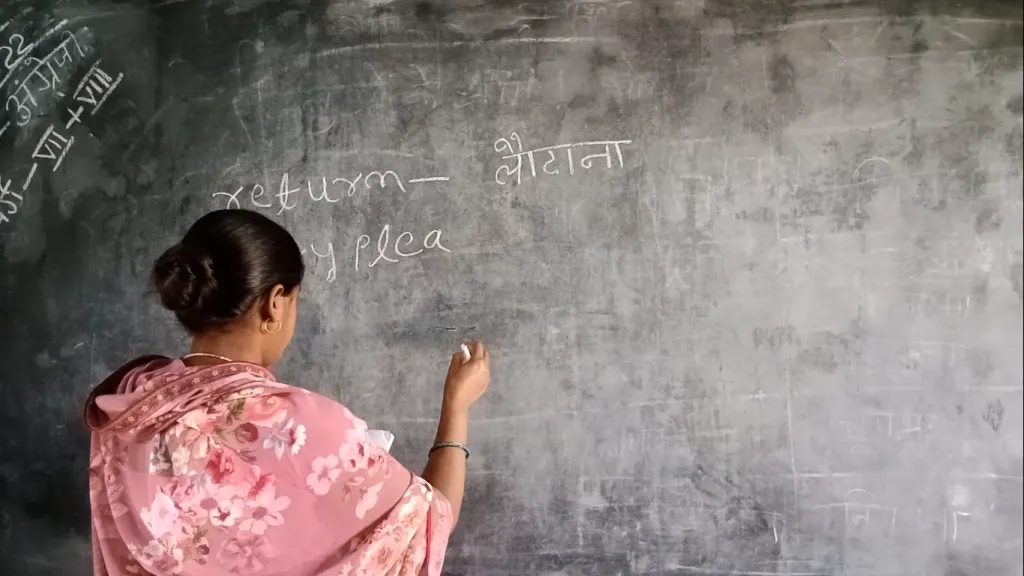 22
अंग्रेजी
VII + VIII
return – लौटाना
y plea